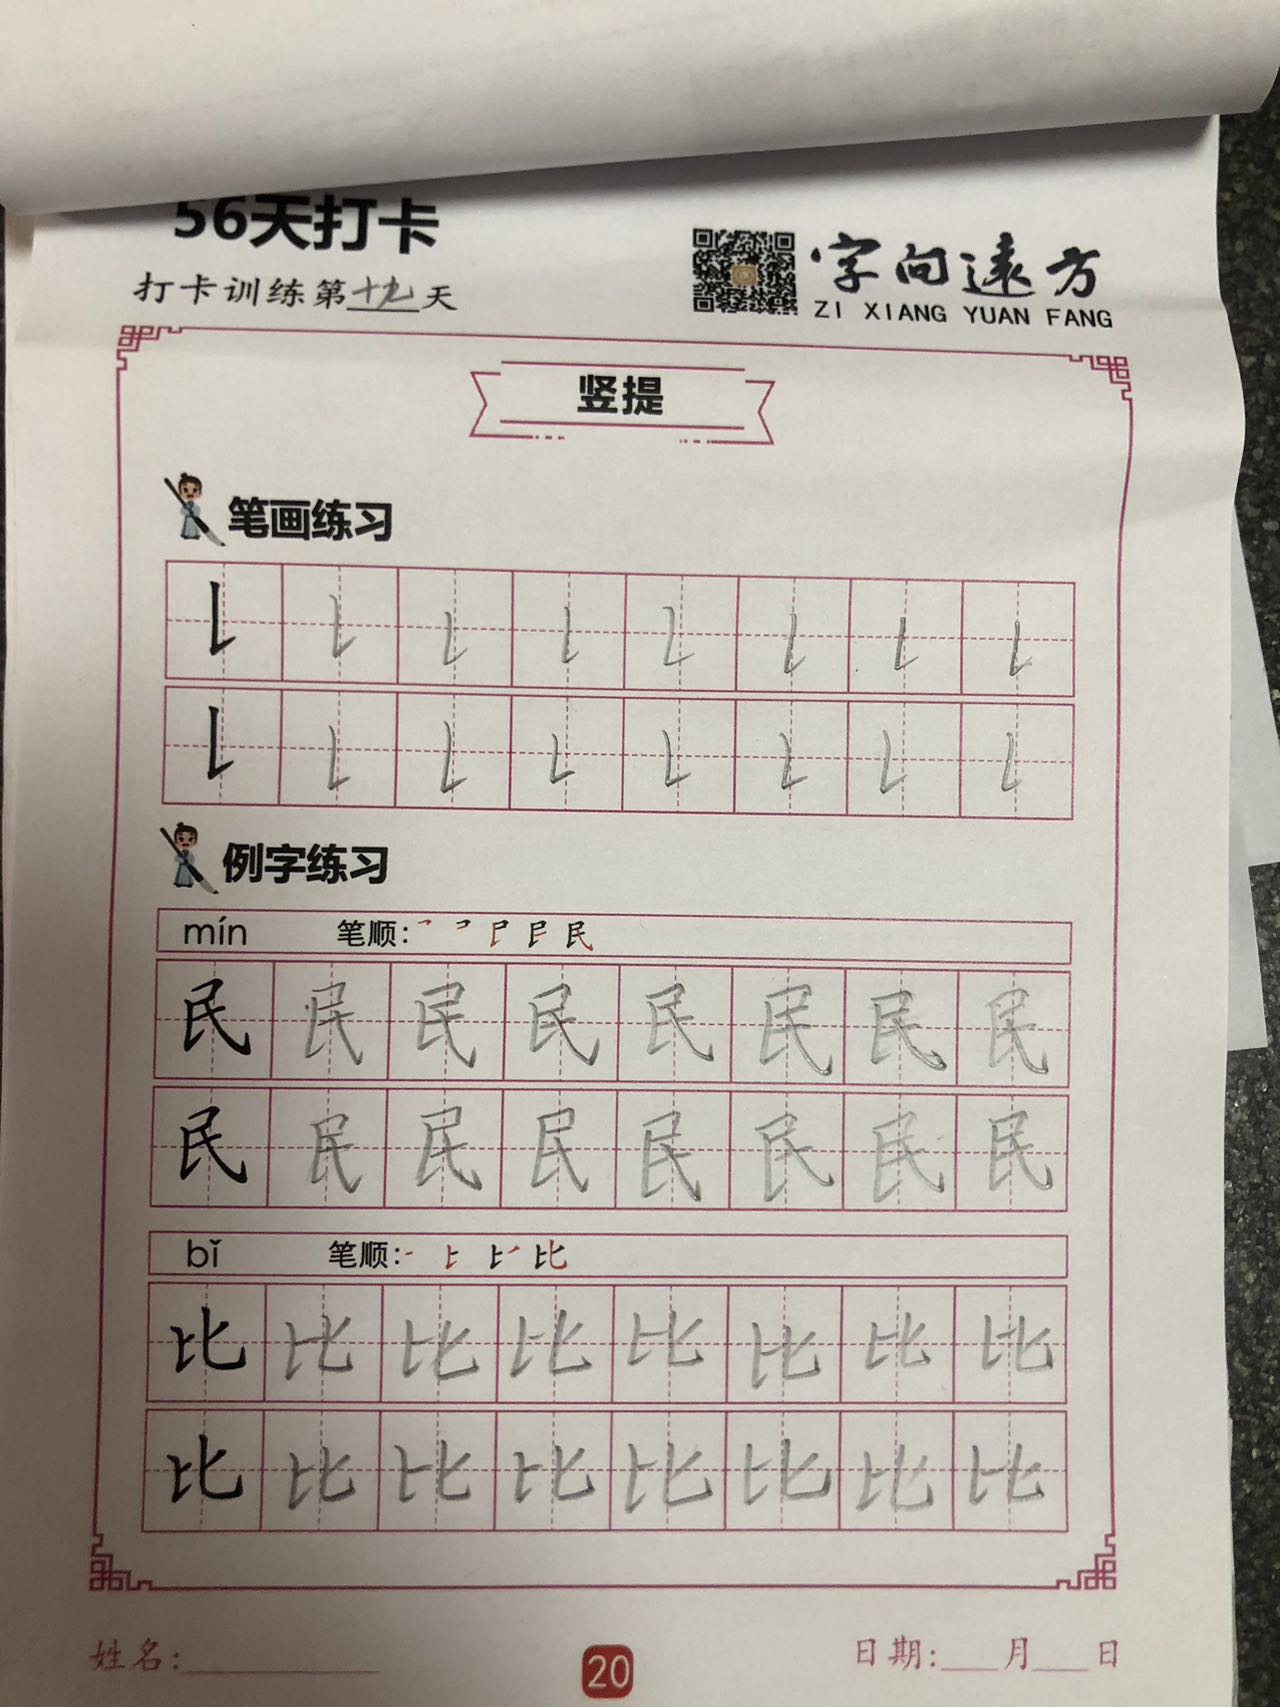 56天打卡
打卡训练第十九天
字向遠方
ZI XIANG YUAN FANG
竖提
笔画练习
㇙ ㇙ ㇙ ㇙ ㇙ ㇙ ㇙ ㇙
㇙ ㇙ ㇙ ㇙ ㇙ ㇙ ㇙ ㇙
例字练习
mín 笔顺: 民
民 民 民 民 民 民 民 民
民 民 民 民 民 民 民 民
bǐ 笔顺: 比
比 比 比 比 比 比 比 比
比 比 比 比 比 比 比 比
姓名:______ 20 日期:___月___日